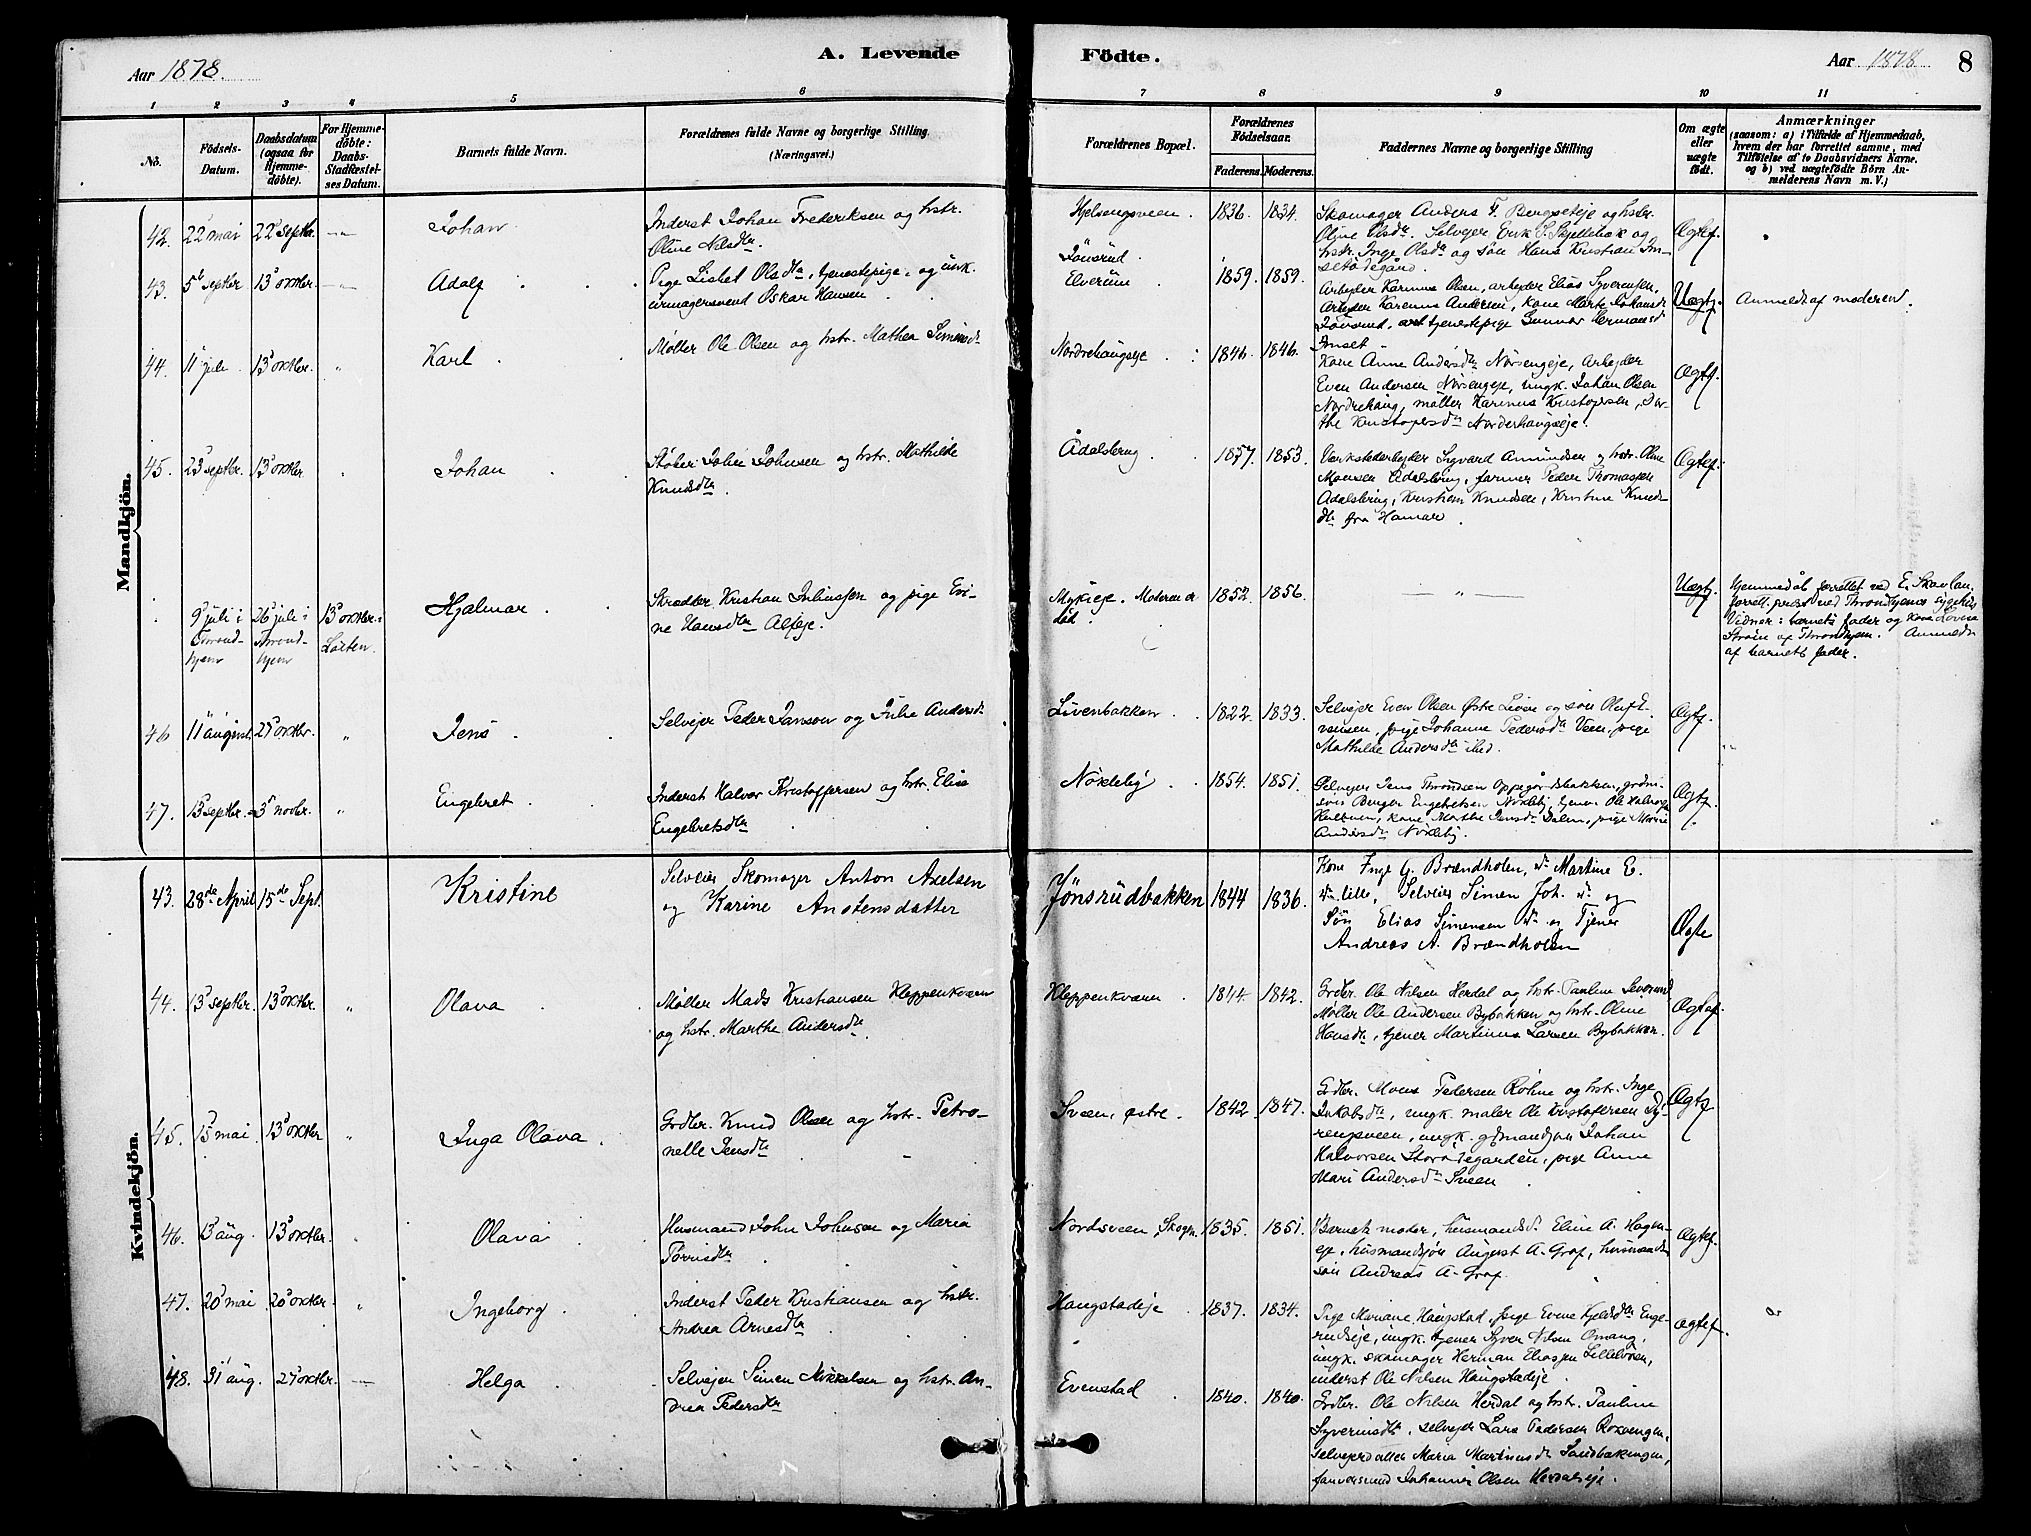 A. Levende
Födte.
Aar 1878.
Aar 1878.
8
1 2 3 4 5 6
7 8 9 10 11
No.
Födsels-
Datum.
Daabsdatum
(ogsaa for
Hjemme-
döbte).
For Hjemme-
döbte:
Daabs-
Stadfæstel-
ses Datum.
Barnets fulde Navn.
Forældrenes fulde Navne og borgerlige Stilling.
(Næringsvei.)
Forældrenes Bopæl.
Forældrenes
Födselsaar.
Faderens.
Moderens.
Faddernes Navne og borgerlige Stilling
Om ægte
eller
uægte
födt.
Anmærkninger
(saasom: a) i Tilfælde af Hjemmedaab,
hvem der har forrettet samme, med
Tilföielse af to Daabsvidners Navne.
og b) ved uægtefödte Börn An-
melderens Navn m. V.;)
Mandkjön.
42. 22 mai 22 septbr. Johan
Inderst Johan Frederiksen og hstr.
Oline Nilsdtr.
Hjelsengsveen. 1836. 1834.
Skomager Anders F. Bergseteje og hstr.
Oline Olsdtr. Selvejer Erik S. Skjellebæk og
hstr. Inge Olsdtr og søn Hans Kristian
Ægtef.
43. 5 septbr 13 oktbr. Adolf
Pige Lisbet Olsdtr, tjenestepige, og ungk.
urmagersvend Oskar Hansen
Jønsrud
Elverum 1859. 1859.
Arbejder Karinus Olsen, arbejder Elias Syversen,
Arbejder Karenus Andersen, kone Marte Johansdtr
Jønsrud, tjenestepige Gunnar Hermansd
Inset.
Uægtf. Anmeldt af moderen.
44. 11 juli 13 oktbr. " Karl
Møller Ole Olsen og hstr. Mathea Simensdtr
Nordrehaugseje 1846. 1846.
Kone Anne Andersdtr Nørsengeje, Arbejder
Even Andersen Nørsengeje, ungk. Johan Olsen
Nordrehaug, møller Karinus Kristofersen,
Kristofersdtr Norderhaugseje.
Ægtf.
45. 23 septbr. 13 oktbr. " Johan
Støber John Johnsen og hstr. Mathilde
Knudsdtr.
Ådalsbrug 1857. 1853.
Værkstedarbejder Sigvard Amundsen og hstr. Oline
Monsen Ådalsbrug, former Peder Thomassen
Ådalsbrug, Kristian Knudsen, Kristine Knuds
dtr fra Hamar.
Ægtef.
9 juli i
Trond-
hjem
26 juli i
Thrond-
hjem
13 oktbr. i
Løiten.
Hjalmar
Skrædder Kristian Juliussen og pige
ne Hansdtr Alfseje.
Mykleje. Moderen er
død. 1852. 1856.
— " —
Uægtf.
Hjemmedåb forrettet ved E. Skavlan
forrett. præst ved Throndhjems sygehus
Vidner: barnets fader og kone Lovise
Strøm af Throndhjem. Anmeldt
af barnets fader.
46 11 august. 27 oktbr. " Jens
Selvejer Peder Janson og Julie Andersdtr
Livenbakken 1822. 1833.
Selvejer Even Olsen Østre Liven og søn Oluf E-
vensen, pige Johanne Pedersdtr Veen, pige
Mathilde Andersdtr ibid.
Ægtf.
47. 13 septbr. 3 novbr. " Engebret
Inderst Halvor Kristoffersen og hstr. Elise
Engebretsdtr
Nökleby 1854. 1851.
Selvejer Jens Throndsen Oppegårdsbakken, grdm.
søn Berger Engebretsen Nökleby, tjener Ole Halvorsen
kone Marthe Jensdtr Dalen, pige Marie
Andersdtr Nökleby.
Ægtf.
Kvindekjön.
43. 28de April 15de Sept. Kristine
Selveier Skomager Anton Axelsen
og Karine Anstensdatter
Jönsrudbakken 1844 1836.
Kone Inge G. Brændholen, do Martine E.
do lille, Selveier Simen Joh. do og
Sön Elias Simensen do og Tjener
Andreas A. Brændholen
Ægte
44. 13 septbr. 13 oktbr. " Olava
Møller Mads Kristiansen Kleppenkværn
og hstr. Marthe Andersdtr.
Kleppenkværn 1844. 1842.
Grdbr. Ole Nilsen Herdal og hstr. Pauline
Møller Ole Andersen Bybakken og hstr. Oline
Hansdtr, tjener Martinus Larsen Bybakken.
Ægtef.
45. 15 mai 13 oktbr " Inga Olava
Grdbr. Knud Olsen og hstr. Petro-
nelle Jensdtr
Sveen, østre 1842 1847.
Grdbr. Mons Pedersen Rohne og hstr. Inge
Jakobsdtr, ungk. maler Ole Kristofersen Ty-
rengsveen, ungk. gdmandssøn Johan
Halvorsen Storødegården, pige Anne
Mari Andersdtr Sveen
Ægtf
46. 13 aug. 13 oktbr. " Olava
Husmand John Johnsen og Maria
Tørrisdtr
Nordsveen, Skogn. 1835. 1851.
Barnets moder, husmandsd. Eline A. Hagen-
eje, husmandssøn August A. Graf, husmands
søn Andreas A. Graf.
Ægtef.
47. 20 mai 20 oktbr. " Ingeborg
Inderst Peder Kristiansen og hstr.
Andrea Arnesdtr
Haugstadeje 1837. 1834.
Pige Mariane Haugstad, pige Evine Kjeldsdtr Enge-
rudseje, ungk. tjener Syver Nilsen Omang,
ungk. skomager Herman Eliassen Lilleløken,
inderst Ole Nilsen Haugstadeje.
Ægtef.
48. 31 aug. 27 oktbr. Helga
Selvejer Simen Mikkelsen og hstr. An-
drea Pedersdtr
Evenstad 1840. 1840.
Grdbr. Ole Nilsen Herdal og hstr. Pauline
Syverinsdtr, selvejer Lars Pedersen Rokvengen,
selvejerdatter Maria Martinusd. Sandbakengen,
Johannes Olsen Herdalseje.